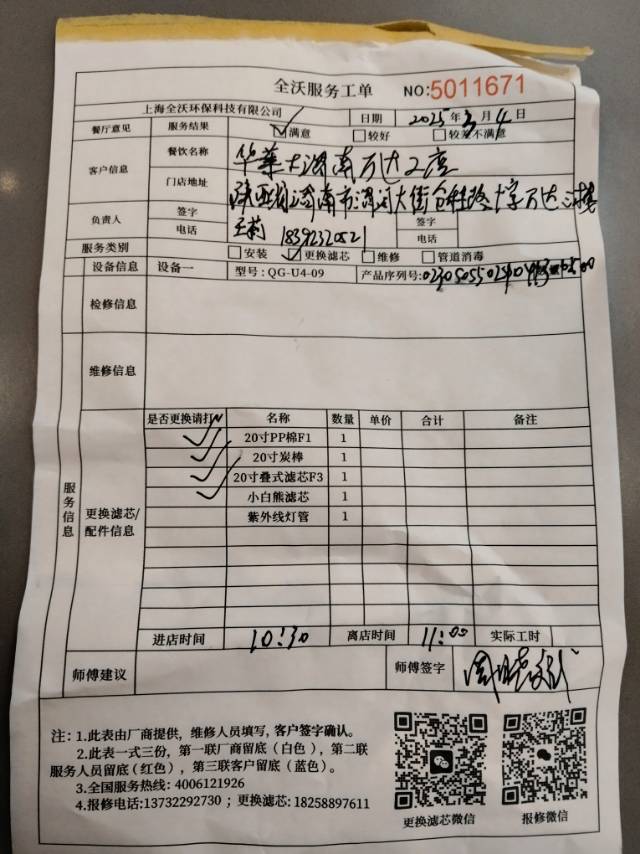 全沃服务工单 NO:5011671
上海全沃环保科技有限公司 日期 2025年3月4日
餐厅意见 服务结果 ☑满意 □较好 □较差不满意
客户信息 餐饮名称 华莱士渭南万达二店
门店地址 陕西省渭南市 大街 十字万达
负责人 签字 签字
电话 18392320521 电话
服务类别 □安装 ☑更换滤芯 □维修 □管道消毒
设备信息 设备一 型号:QG-U4-09 产品序列号:
检修信息
维修信息
服务信息
更换滤芯/配件信息
是否更换请打√ 名称 数量 单价 合计 备注
✓ 20寸PP棉F1 1
✓ 20寸炭棒 1
✓ 20寸叠式滤芯F3 1
✓ 小白熊滤芯 1
紫外线灯管 1
进店时间 10:30 离店时间 11:00 实际工时
师傅建议 师傅签字
注:1.此表由厂商提供，维修人员填写，客户签字确认。
2.此表一式三份，第一联厂商留底（白色），第二联
服务人员留底（红色），第三联客户留底（蓝色）。
3.全国服务热线: 4006121926
4.报修电话:13732292730 ; 更换滤芯: 18258897611
更换滤芯微信 报修微信